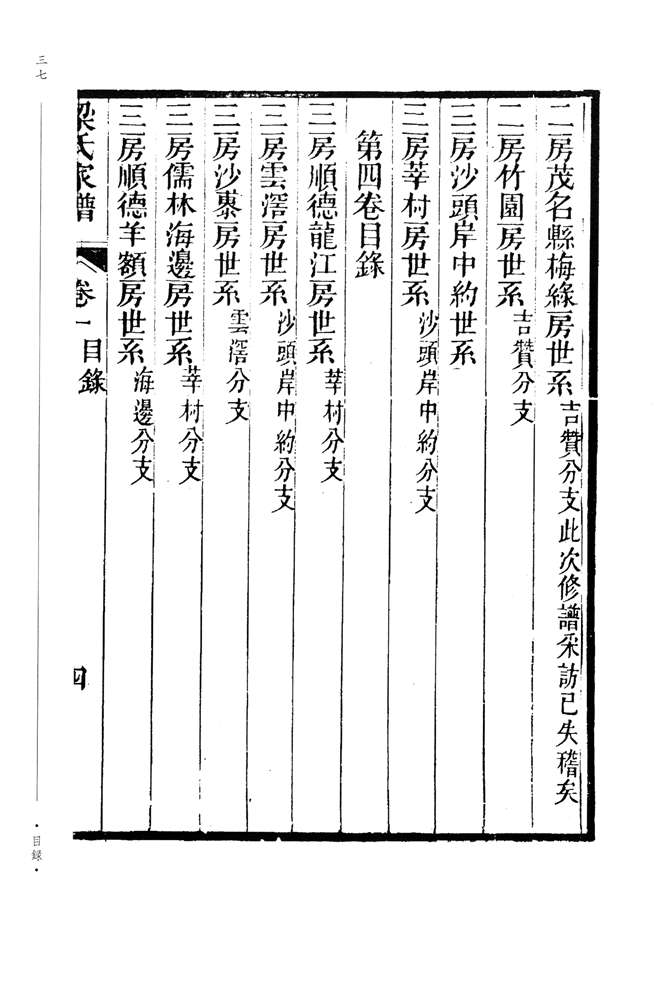 二房茂名縣梅綠房世系吉贊分支此次修譜采訪已失稽矣
二房竹園房世系吉贊分支
三房沙頭岸中約世系
三房莘村房世系沙頭岸中約分支
第四卷目錄
三房順德龍江房世系莘村分支
三房雲滘房世系沙頭岸中約分支
三房沙㯽房世系雲滘分支
三房儒林海邊房世系莘村分支
三房順德羊額房世系海邊分支
梁氏家譜 卷一目錄 四
三七
·目録·